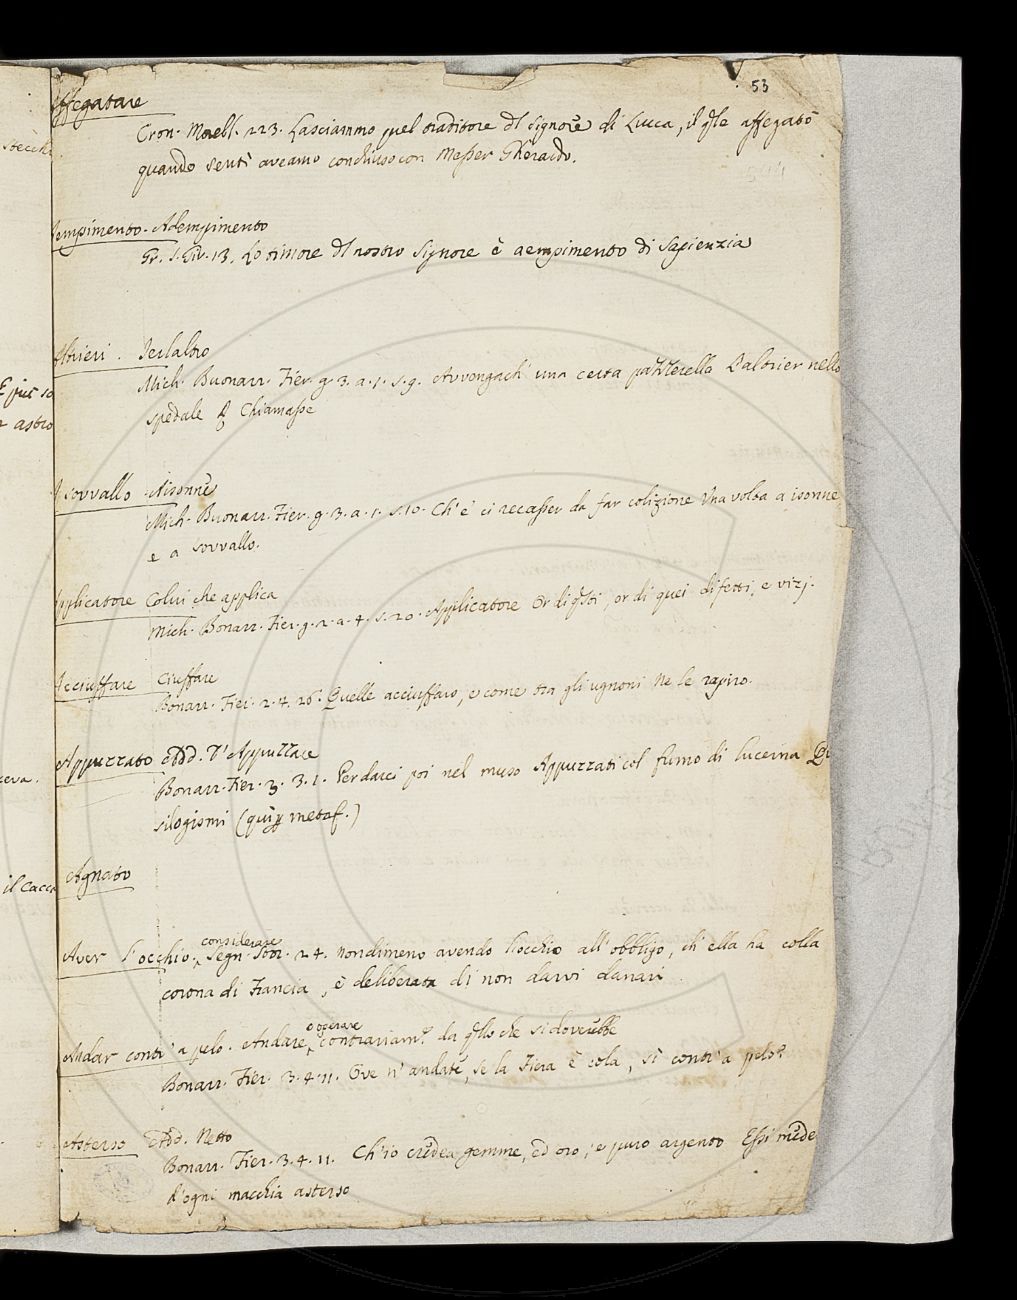 53
Affegatare
Cron. Morell. 223. Lasciammo quel traditore dl signore di Lucca, il qle affegatò
quando sentì aveamo conchiuso con Messer Gherardo.
stecchi
Aempimento. Adempimento
Gr. S. Gir. 13. Lo timore dl nostro Signore è aempimento di Sapienzia
Altrieri. Ierlaltro
Mich. Buonarr. Fier. g. 3. a. 1. s. 9. Avvengach' una certa pazzerella L'altrier nello
spedale
Chiamasse
E pur so
astro
A sovvallo Aisonne
Mich. Buonarr. Fier. g. 3. a. 1. s. 10. Ch' è ci recasser da far colizione Una volta a isonne
e a sovvallo.
Applicatore Colui che applica
Mich. Bonarr. Fier. g. 2. a. 4. s. 20. Applicatore Or di qsti, or di quei difetti, e vizj.
Acciuffare Ciuffare
Bonarr. Fier. 2. 4. 26. Quelle acciuffaro, e come tra gli ugnoni Ne le rapiro.
Appuzzato Add. d' Appuzzare
Bonarr. Fier. 3. 3. 1. Per darci poi nel muso Appuzzati col fumo di lucerna
silogismi (quì metaf.)
ceva.
Agnato
il cacc
considerare
Aver l'occhio. Segn. Stor. 24. Nondimeno avendo l'occhio all'obbligo, ch' ella ha colla
corona di Francia, è deliberata di non darvi danari
o operare
Andar contr' a pelo. Andare, contrariamte da qllo che si doverebbe
Bonarr. Fier. 3. 4. 11. Ove n' andate, se la Fiera è cola, sì contr' a pelo?
Asterso Add. Netto
Bonarr. Fier. 3. 4. 11. Ch'io credea gemme, ed oro, e puro argento Essi mede
d'ogni macchia asterso